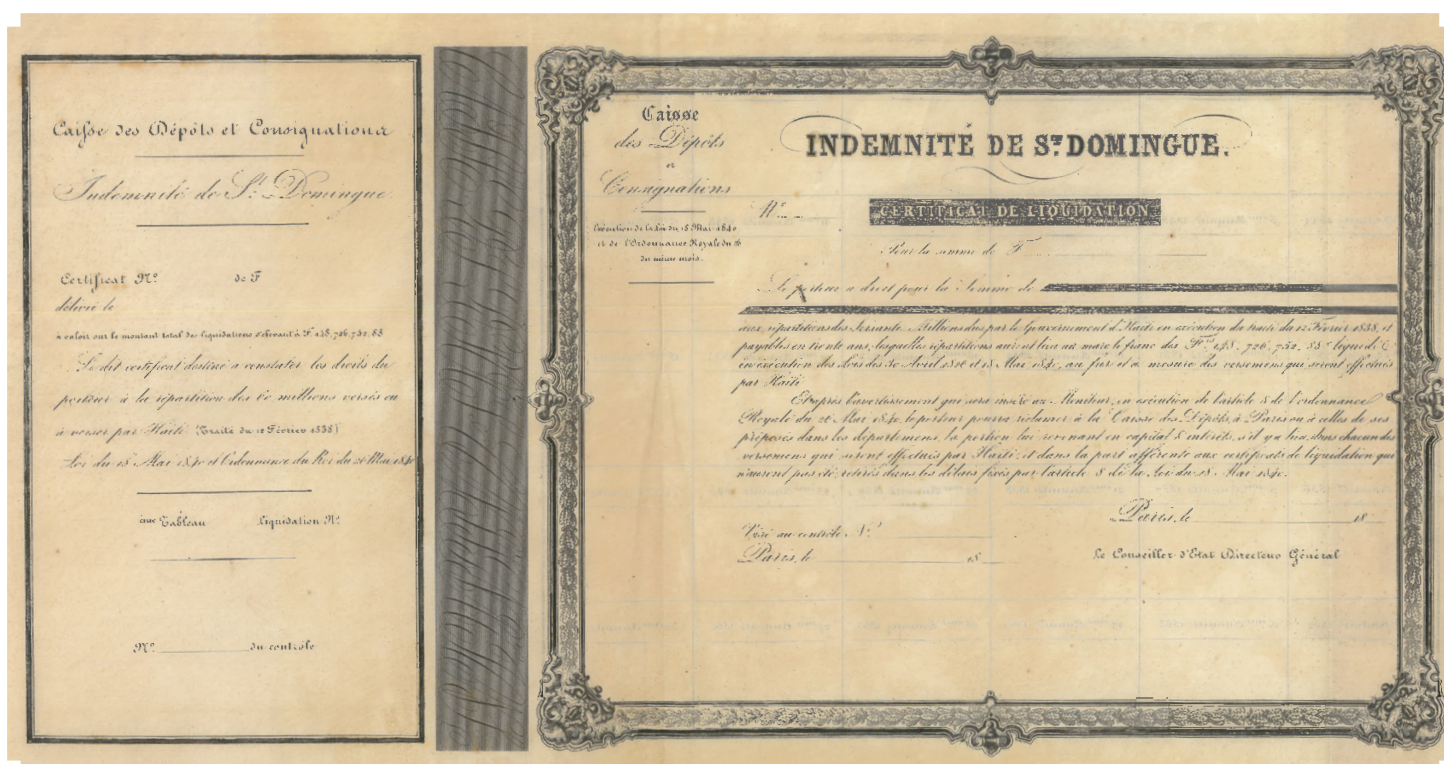 Caisse des Dépôts et Consignations
Indemnité de St. Domingue
Certificat No. de F
délivré le
à valoir sur le montant total des liquidations s'élevant à F. 148,726,752.83
Le dit certificat destiné à constater les droits du
porteur à la répartition des 60 millions versés ou
à verser par Haïti (Traité du 12 Février 1838)
Loi du 18 Mai 1840 et l'ordonnance du Roi du 26 Mai 1840
ème Tableau Liquidation No.
No. du contrôle
Caisse
des Dépôts
et
Consignations
Exécution de la Loi du 18 Mai 1840
et de l'Ordonnance Royale du 26
du même mois.
INDEMNITÉ DE ST. DOMINGUE.
No.
CERTIFICAT DE LIQUIDATION
Pour la somme de F
Le porteur a droit pour la Somme de
aux répartitions des Soixante Millions dus par le Gouvernement d'Haïti en exécution du traité du 12 Février 1838, et
payables en trente ans, lesquelles répartitions auront lieu au marc le franc des Frs 148,726,752,83c liquidés
en exécution des Lois des 30 Avril 1826 et 18 Mai 1840, au fur et à mesure des versemens qui seront effectués
par Haïti
Et après l'avertissement qui sera inséré au Moniteur, en exécution de l'article 8 de l'ordonnance
Royale du 26 Mai 1840, le porteur pourra réclamer à la Caisse des Dépôts, à Paris ou à celles de ses
préposés dans les départemens, la portion lui revenant en capital & intérêts, s'il y a lieu, dans chacun des
versemens qui seront effectués par Haïti, et dans la part afférente aux certificats de liquidation qui
n'auront pas été retirés dans les délais fixés par l'article 8 de la Loi du 18 Mai 1840.
Paris, le 18
Visé au contrôle No.
Paris, le 18
Le Conseiller d'Etat Directeur Général